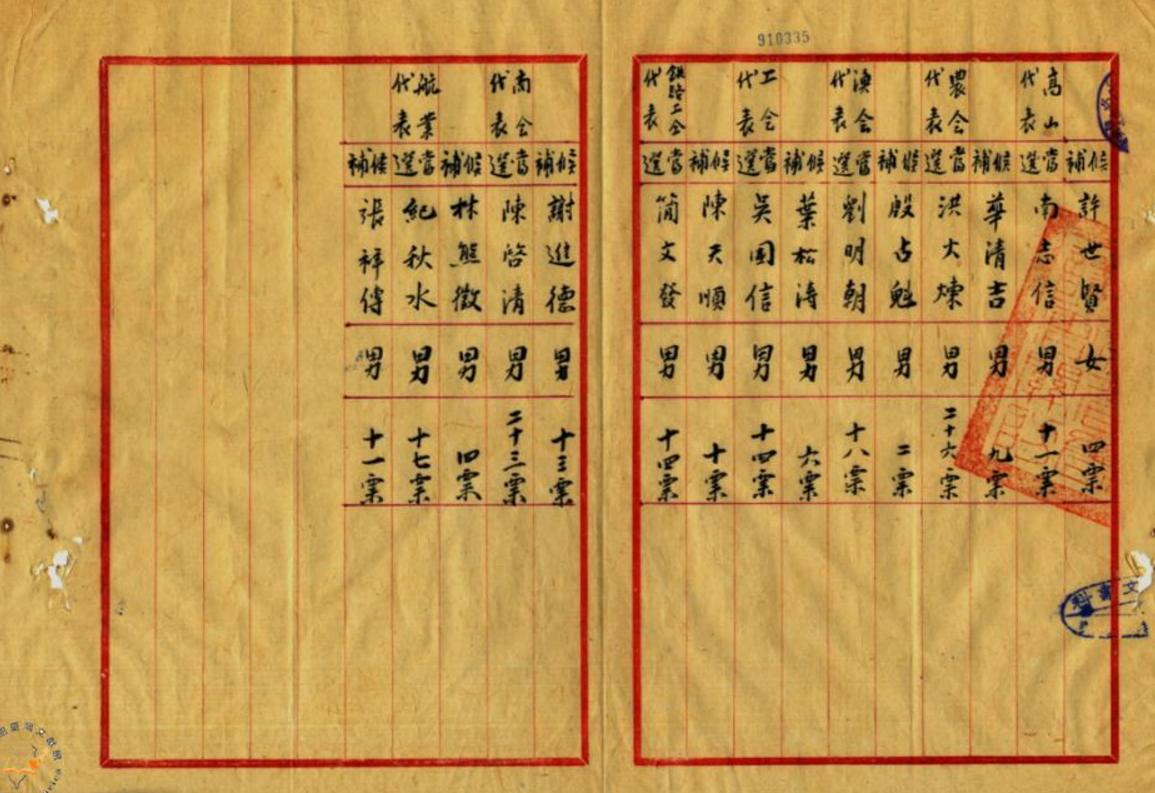 910335
候補 許世賢 女 四票
高山代表 當選 南志信 男 十一票
候補 華清吉 男 九票
農会代表 當選 洪火煉 男 二十六票
候補 殷占魁 男 二票
漁会代表 當選 劉明朝 男 十八票
候補 葉松涛 男 六票
工会代表 當選 吳国信 男 十四票
候補 陳天順 男 十票
鉄路工会代表 當選 簡文發 男 十四票
候補 謝進德 男 十三票
商会代表 當選 陳啓清 男 二十三票
候補 林熊徵 男 四票
航業代表 當選 紀秋水 男 十七票
候補 張祥傳 男 十一票
文書科